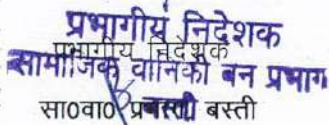 प्रभागीय निदेशक
प्रभागीय निदेशक
सामाजिक वानिकी वन प्रभाग
सा०वा० प्र० बस्ती
बस्ती